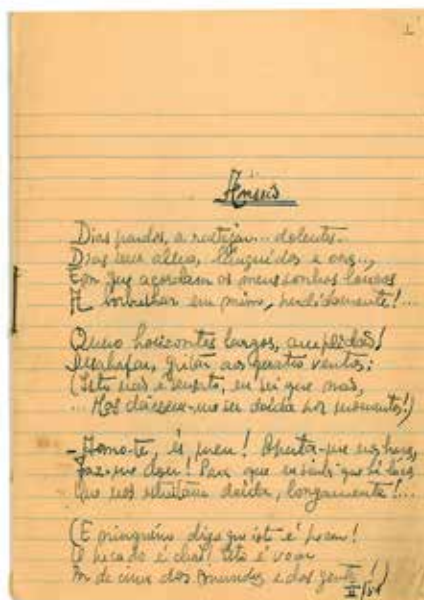 I
Anseio
Dias pardos, a rastejar... dolente.
Dias sem alma, lânguidos e
Em que acordam os meus sonhos loucos
A borbulhar em mim, perdidamente!...
Quero horizontes largos, amplidão!
Desabafar, gritar aos quatro ventos:
(Isto não é sensato, eu sei que não,
... Mas deixem-me ser doida por momentos!)
- Amo-te, és meu! Aperta-me nos braços,
Faz-me doer! Para que eu sinta que há laços
Que nos doida, longamente!...
(E ninguém diga que isto é pecar!
O pecado é chão! Isto é voar
P'r de cima dos mundos e das gentes!)
II/51